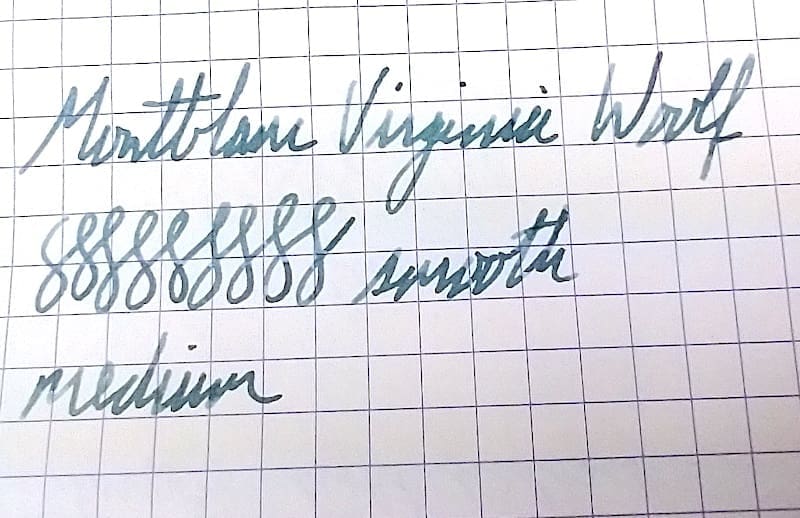 Montblanc Virginia Woolf
888888888 smooth
medium